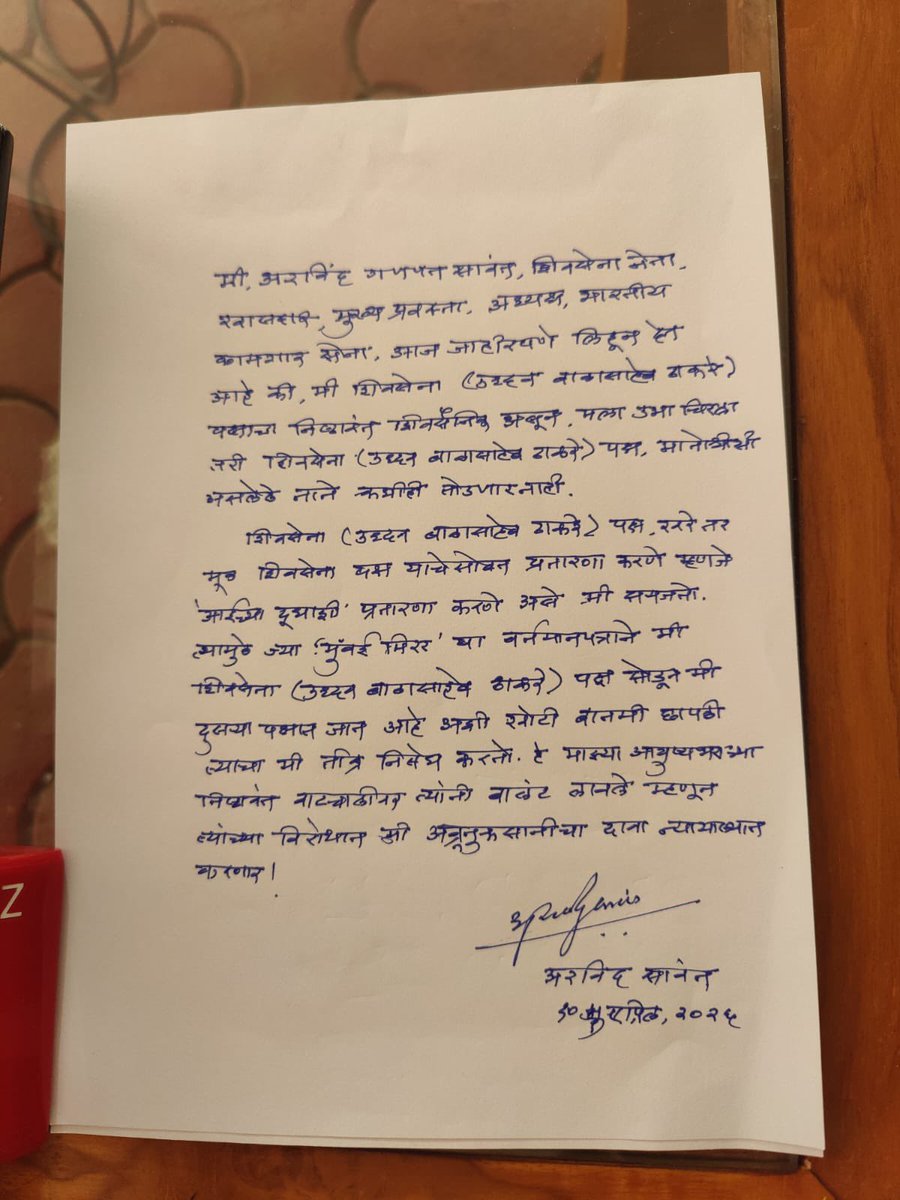 मी, अरविंद गणपत सावंत, शिवसेना नेता,
खासदार, मुख्य प्रवक्ता, अध्यक्ष, भारतीय
कामगार सेना, आज जाहीरपणे लिहून देत
आहे की, मी शिवसेना (उध्दव बाळासाहेब ठाकरे)
पक्षाचा निष्ठावंत शिवसैनिक असून, मला उभा चिरला
तरी शिवसेना (उध्दव बाळासाहेब ठाकरे) पक्ष, मातोश्रीशी
असलेले नाते कधीही तोडणार नाही.
शिवसेना (उध्दव बाळासाहेब ठाकरे) पक्ष, खरे तर
मूळ शिवसेना पक्ष याचेसोबत प्रतारणा करणे म्हणजे
'आईच्या दूधाशी' प्रतारणा करणे असे मी समजतो.
त्यामुळे ज्या 'मुंबई मिरर' या वर्तमानपत्राने मी
शिवसेना (उध्दव बाळासाहेब ठाकरे) पक्ष सोडून मी
दुसऱ्या पक्षात जात आहे अशी खोटी बातमी छापली
त्याचा मी तीव्र निषेध करतो. हे माझ्या आयुष्यभराच्या
निष्ठावंत वाटचालीवर त्यांनी बालंट लावले म्हणून
त्यांच्या विरोधात मी अब्रूनुकसानीचा दावा न्यायालयात
करणार!
अरविंद सावंत
एप्रिल, २०२६
Z